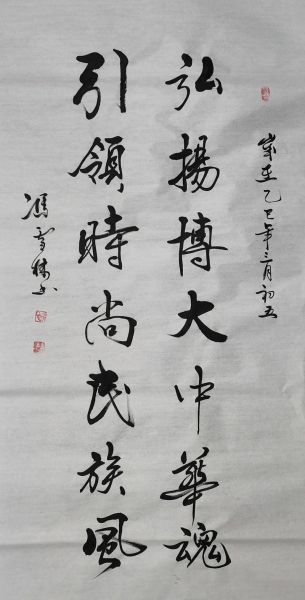 歲在乙巳年三月初五
弘揚博大中華魂
引領時尚民族風
馮雪林書